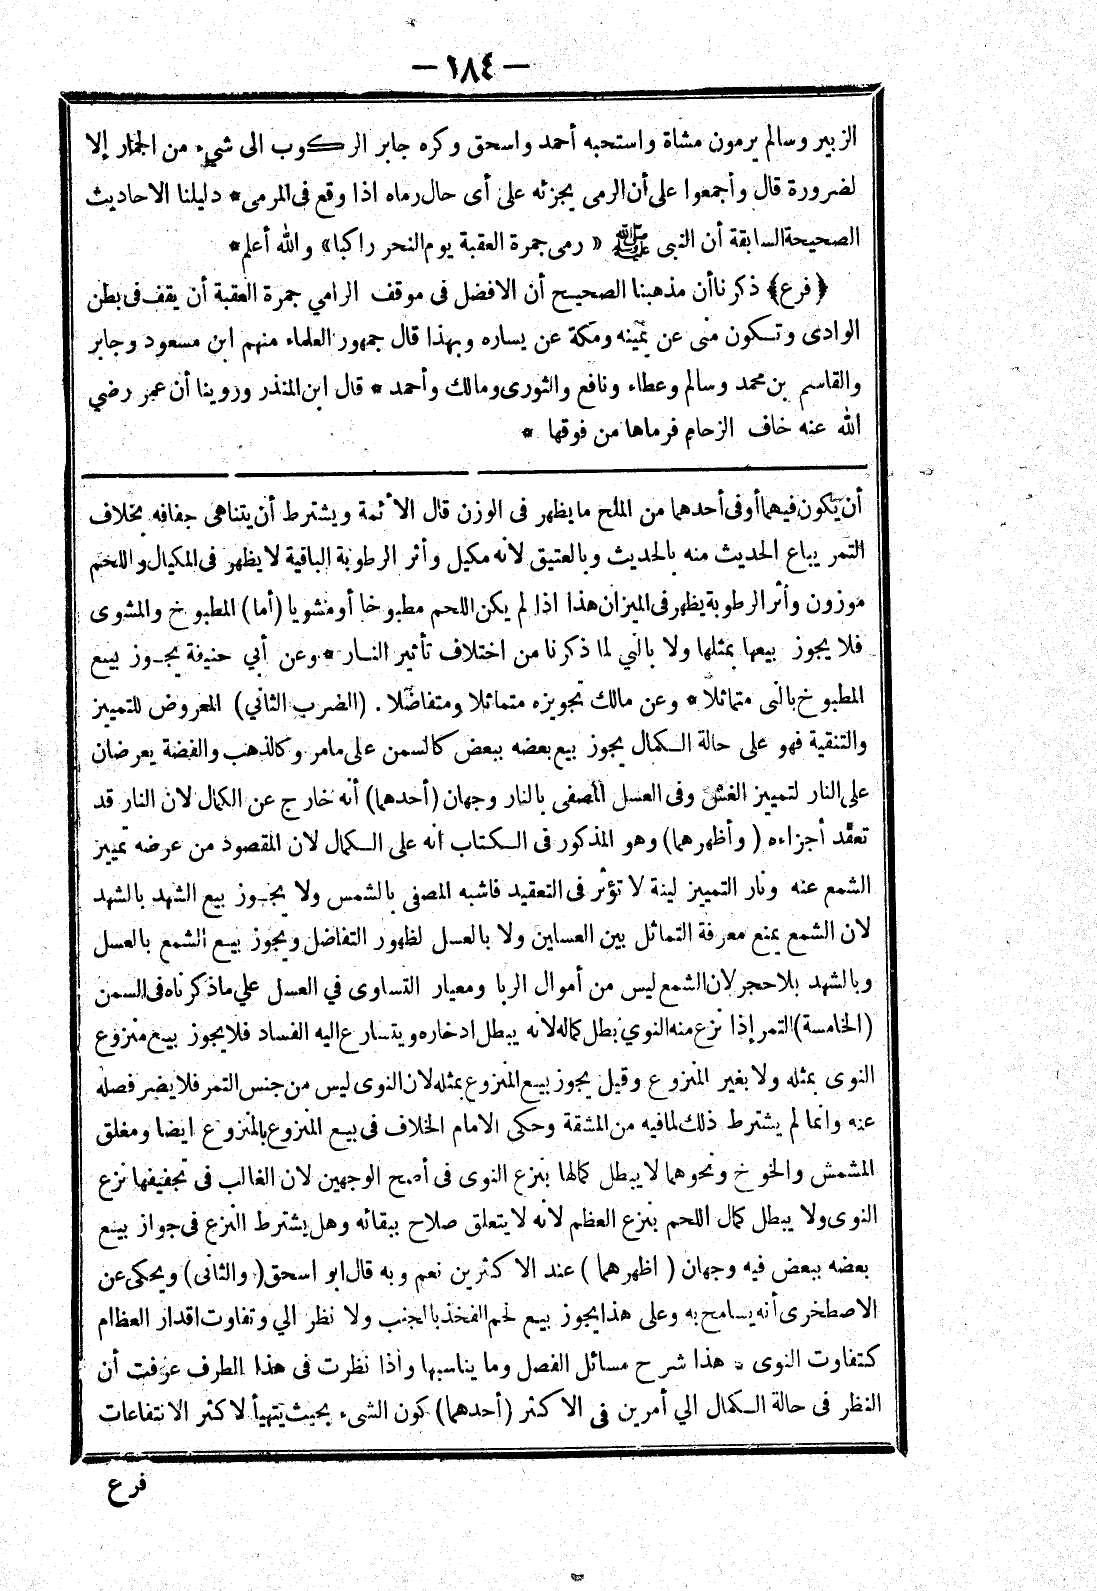 — ١٨٤ —
الزبير وسالم يرمون مشاة واستحبه أحمد واسحق وكره جابر الركوب الى شيء من الجمار إلا
لضرورة قال وأجمعوا على أن الرمى يجزئه على أى حال رماه اذا وقع فى المرمى * دليلنا الاحاديث
الصحيحة السابقة أن النبى ﷺ « رمى جمرة العقبة يوم النحر راكبا» والله أعلم *
﴿ فرع﴾ ذكرنا أن مذهبنا الصحيح أن الافضل فى موقف الرامي جمرة العقبة أن يقف فى بطن
الوادى وتكون منى عن يمينه ومكة عن يساره وبهذا قال جمهور العلماء منهم ابن مسعود وجابر
والقاسم بن محمد وسالم وعطاء ونافع والثورى ومالك وأحمد * قال ابن المنذر وروينا أن عمر رضي
الله عنه خاف الزحام فرماها من فوقها *
أن يكون فيهما أوفى أحدهما من الملح ما يظهر فى الوزن قال الأئمة ويشترط أن يتناهى جفافه بخلاف
التمر يباع الحديث منه بالحديث وبالعتيق لانه مكيل وأثر الرطوبة الباقية لا يظهر فى المكيال واللحم
موزون وأثر الرطوبة يظهر فى الميزان هذا اذا لم يكن اللحم مطبوخا أو مشويا (أما) المطبوخ والمشوى
فلا يجوز بيعها بمثلها ولا بالني لما ذكرنا من اختلاف تأثير النار * وعن أبي حنيفة يجوز بيع
المطبوخ بالنى متماثلا * وعن مالك تجويزه متماثلا ومتفاضلا . (الضرب الثاني) المعروض للتمييز
والتنقية فهو على حالة الكمال يجوز بيع بعضه ببعض كالسمن على مامر وكالذهب والفضة يعرضان
على النار لتمييز الغش وفى العسل المصفى بالنار وجهان (أحدهما) أنه خارج عن الكمال لان النار قد
تعقد أجزاءه ( وأظهرهما) وهو المذكور فى الكتاب انه على الكمال لان المقصود من عرضه تمييز
الشمع عنه ونار التمييز لينة لا تؤثر فى التعقيد فاشبه المصفى بالشمس ولا يجوز بيع الشهد بالشهد
لان الشمع يمنع معرفة التماثل بين العسلين ولا بالعسل لظهور التفاضل ويجوز بيع الشمع بالعسل
وبالشهد بلا حجر لان الشمع ليس من أموال الربا ومعيار التساوى في العسل علي ماذكرناه فى السمن
(الخامسة) التمر إذا نزع منه النوي بطل كماله لانه يبطل ادخاره ويتسارع اليه الفساد فلا يجوز بيع منزوع
النوى بمثله ولا بغير المنزوع وقيل يجوز بيع المنزوع بمثله لان النوى ليس من جنس التمر فلا يضر فصله
عنه وانما لم يشترط ذلك لمافيه من المشقة وحكى الامام الخلاف فى بيع المنزوع بالمنزوع ايضا ومفلق
المشمش والخوخ ونحوهما لا يبطل كمالها بنزع النوى فى أصح الوجهين لان الغالب فى تجفيفها نزع
النوى ولا يبطل كمال اللحم بنزع العظم لانه لا يتعلق صلاح ببقائه وهل يشترط النزع فى جواز بيع
بعضه ببعض فيه وجهان ( اظهرهما ) عند الاكثرين نعم وبه قال ابو اسحق( والثانى) ويحكى عن
الاصطخرى أنه يسامح به وعلى هذا يجوز بيع لحم الفخذ بالجنب ولا نظر الي وتفاوت اقدار العظام
كتفاوت النوى * هذا شرح مسائل الفصل وما يناسبها وأذا نظرت فى هذا الطرف عرفت أن
النظر فى حالة الكمال الي أمرين فى الاكثر (أحدهما) كون الشىء بحيث يتهيأ لاكثر الانتفاعات
فرع